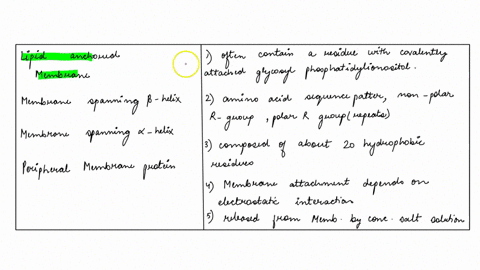 Lipid anchored
Membrane
Membrane spanning β-helix
Membrane spanning α-helix
Peripheral Membrane protein
1) often contain a residue with covalently
attached glycosyl phosphatidylionositol.
2) amino acid sequence patter, non-polar
R-group, polar R group (repeates)
3) composed of about 20 hydrophobic
residues
4) Membrane attachment depends on
electrostatic interaction
5) released from Memb. by conc. salt solution